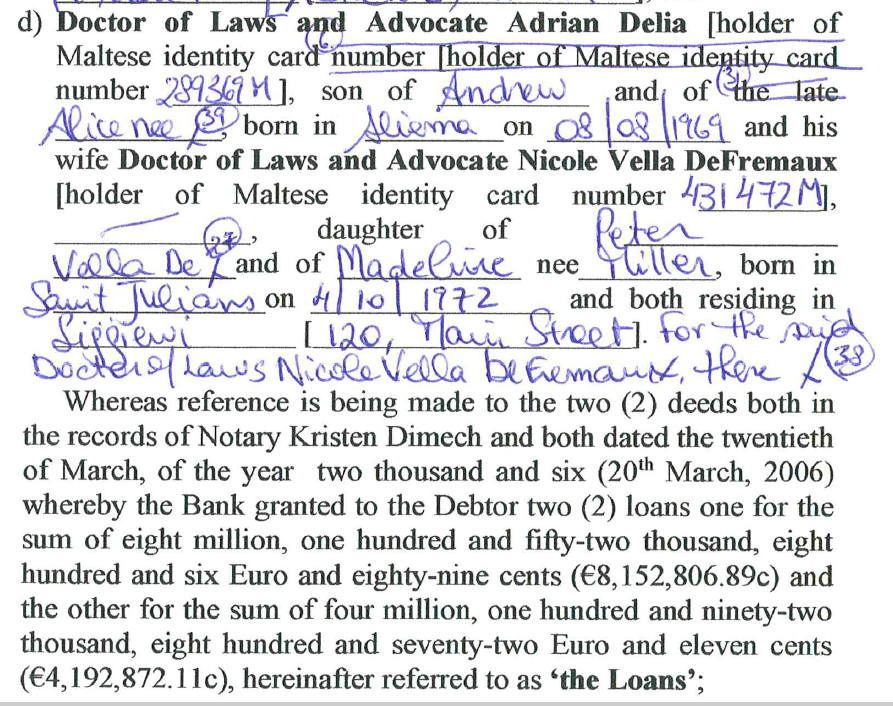 d) Doctor of Laws and Advocate Adrian Delia [holder of
Maltese identity card (6) number [holder of Maltese identity card
number 289369M], son of Andrew and of (31) the late
Alice nee (39), born in Sliema on 08/08/1969 and his
wife Doctor of Laws and Advocate Nicole Vella DeFremaux
[holder of Maltese identity card number 431472M],
(27), daughter of Peter
Vella De and of Madeline nee Miller, born in
Saint Julians on 4/10/1972 and both residing in
Siggiewi [120, Main Street]. For the said
Doctor of Laws Nicole Vella DeFremaux, there (38)
Whereas reference is being made to the two (2) deeds both in
the records of Notary Kristen Dimech and both dated the twentieth
of March, of the year two thousand and six (20th March, 2006)
whereby the Bank granted to the Debtor two (2) loans one for the
sum of eight million, one hundred and fifty-two thousand, eight
hundred and six Euro and eighty-nine cents (€8,152,806.89c) and
the other for the sum of four million, one hundred and ninety-two
thousand, eight hundred and seventy-two Euro and eleven cents
(€4,192,872.11c), hereinafter referred to as ‘the Loans’;